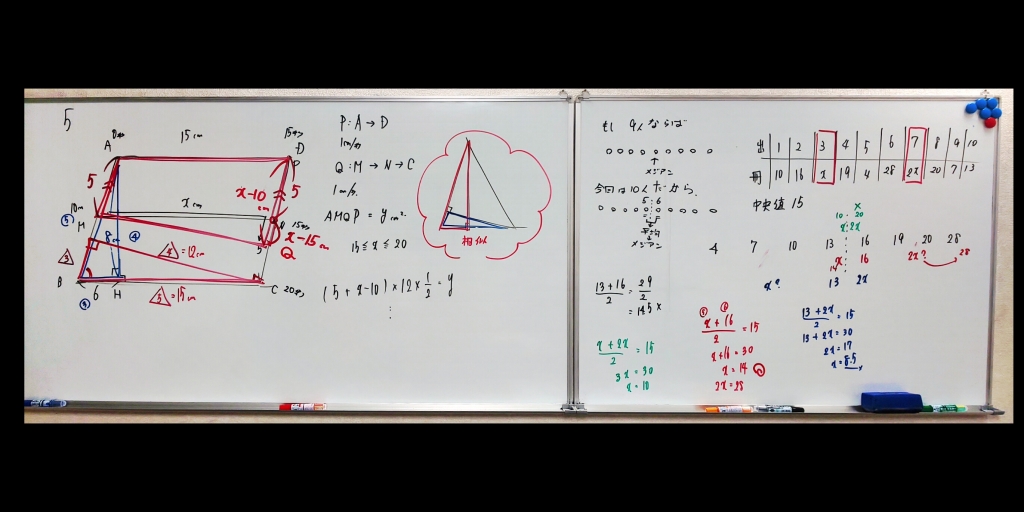 5
A
15cm
D
P
5
x-10
cm
5
x cm
10cm
M
N
x-15cm
Q
8cm
④
3
4 = 12cm
B
6
H
5 = 15cm
C 20秒
P : A → D
1cm/s
Q : M → N → C
1cm/s.
AMQP = y cm²
15 ≤ x ≤ 20
(5 + x-10) × 12 × 1/2 = y
相似
もし 9人ならば
メジアン
今回は10人だから、
5 : 6
平均
メジアン
出 1 2 3 4 5 6 7 8 9 10
冊 10 16 x 19 4 28 2x 20 7 13
中央値 15
x
10 20
x 2x
4 7 10 13 16 19 20 28
14 x 16 2x? 28
x? 13 2x
13+16/2 = 29/2
= 14.5 ×
x+2x/2 = 15
3x = 30
x = 10
x+16/2 = 15
x+16 = 30
x = 14
2x = 28
13+2x/2 = 15
13+2x = 30
2x = 17
x = 8.5 ×